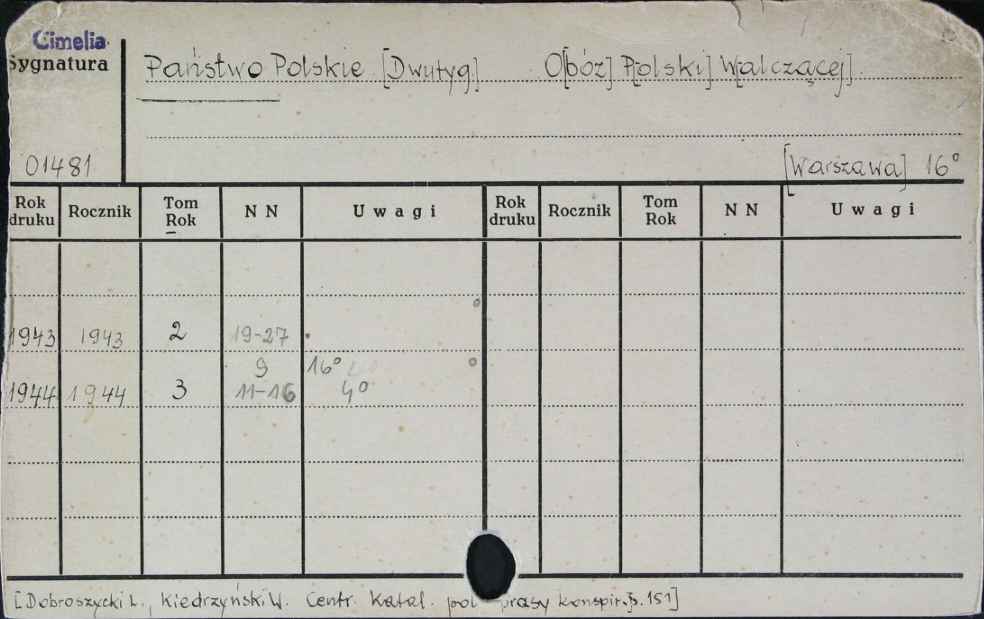 Cimelia
Sygnatura
Państwo Polskie [Dwutyg.] O[bóz] P[olski] W[alczącej].
01481
[Warszawa] 16°
Rok druku Rocznik Tom Rok N N Uwagi Rok druku Rocznik Tom Rok N N Uwagi
1943 1943 2 19-27
9 16°
1944 1944 3 11-16 4°
[Dobroszycki L., Kiedrzyński W. Centr. Katal. pol prasy konspir. s. 151]